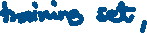 training set,